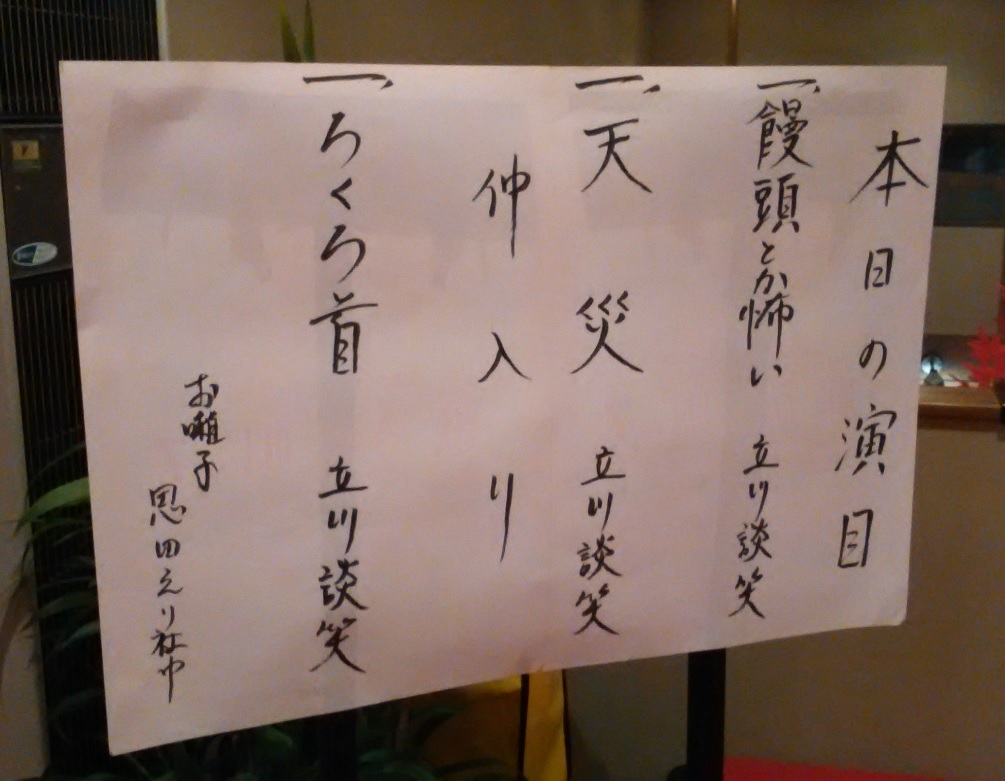 本日の演目
一、饅頭とか怖い 立川談笑
一、天災 立川談笑
仲入り
一、ろくろ首 立川談笑
お囃子
恩田えり社中